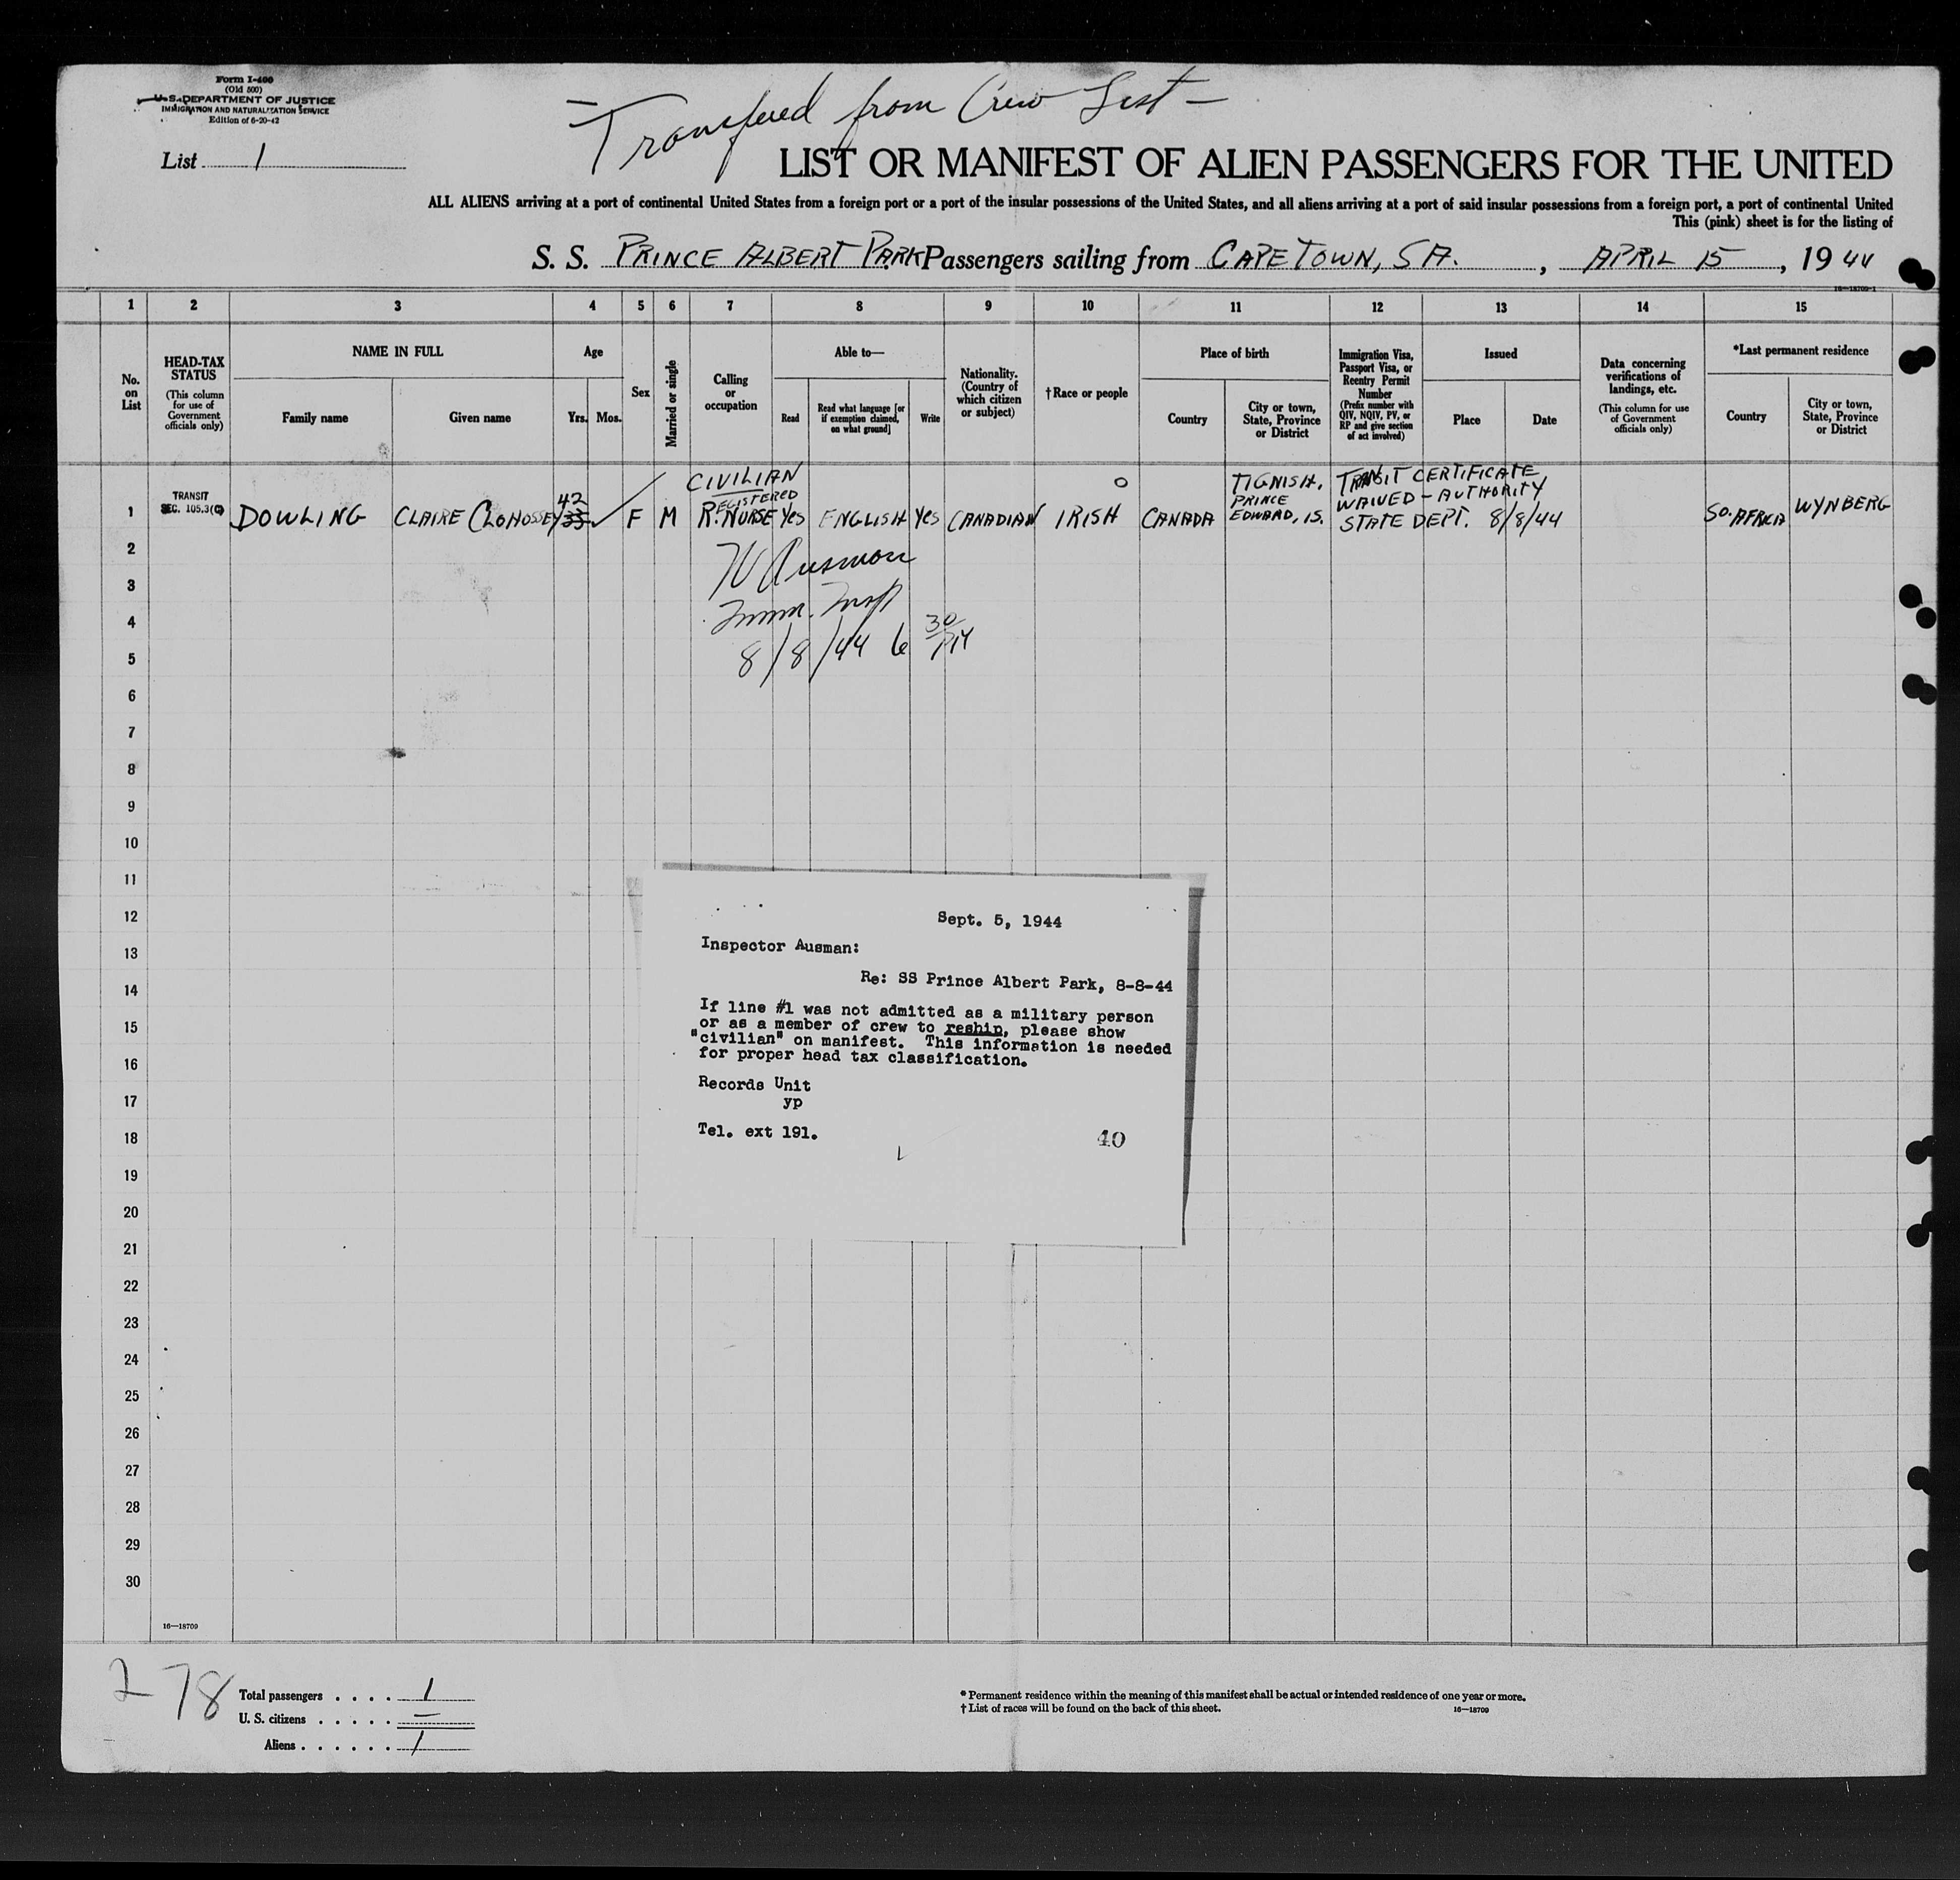 Form I-400
(Old 500)
U. S. DEPARTMENT OF JUSTICE
IMMIGRATION AND NATURALIZATION SERVICE
Edition of 6-20-42
-Transfered from Crew List-
List 1
LIST OR MANIFEST OF ALIEN PASSENGERS FOR THE UNITED
ALL ALIENS arriving at a port of continental United States from a foreign port or a port of the insular possessions of the United States, and all aliens arriving at a port of said insular possessions from a foreign port, a port of continental United
This (pink) sheet is for the listing of
S. S. PRINCE ALBERT PARK Passengers sailing from CAPETOWN, SA. , APRIL 15 , 19 44
16—18709-1
1 2 3 4 5 6 7 8 9 10 11 12 13 14 15
No. on List
HEAD-TAX STATUS
(This column for use of Government officials only)
NAME IN FULL
Family name
Given name
Age
Yrs. Mos.
Sex
Married or single
Calling or occupation
Able to—
Read
Read what language [or if exemption claimed, on what ground]
Write
Nationality. (Country of which citizen or subject)
† Race or people
Place of birth
Country
City or town, State, Province or District
Immigration Visa, Passport Visa, or Reentry Permit Number
(Prefix number with QIV, NQIV, PV, or RP and give section of act involved)
Issued
Place
Date
Data concerning verifications of landings, etc.
(This column for use of Government officials only)
*Last permanent residence
Country
City or town, State, Province or District
1 TRANSIT SEC. 105.3(C) DOWLING CLAIRE CLOHOSSEY 42 33 F M CIVILIAN REGISTERED R. NURSE Yes ENGLISH Yes CANADIAN IRISH CANADA TIGNISH, PRINCE EDWARD, IS. TRANSIT CERTIFICATE WAIVED - AUTHORITY STATE DEPT. 8/8/44 SO. AFRICA WYNBERG
2
W Ausman
3
Imm. Insp
4
8/8/44 6 30 PM
5
6
7
8
9
10
11
12
13
14
15
16
17
18
19
20
21
22
23
24
25
26
27
28
29
30
Sept. 5, 1944
Inspector Ausman:
Re: SS Prince Albert Park, 8-8-44
If line #1 was not admitted as a military person
or as a member of crew to reship, please show
"civilian" on manifest. This information is needed
for proper head tax classification.
Records Unit
yp
Tel. ext 191.
40
16—18709
278
Total passengers . . . . 1
U. S. citizens . . . . . —
Aliens . . . . . . 1
* Permanent residence within the meaning of this manifest shall be actual or intended residence of one year or more.
† List of races will be found on the back of this sheet.
16—18709